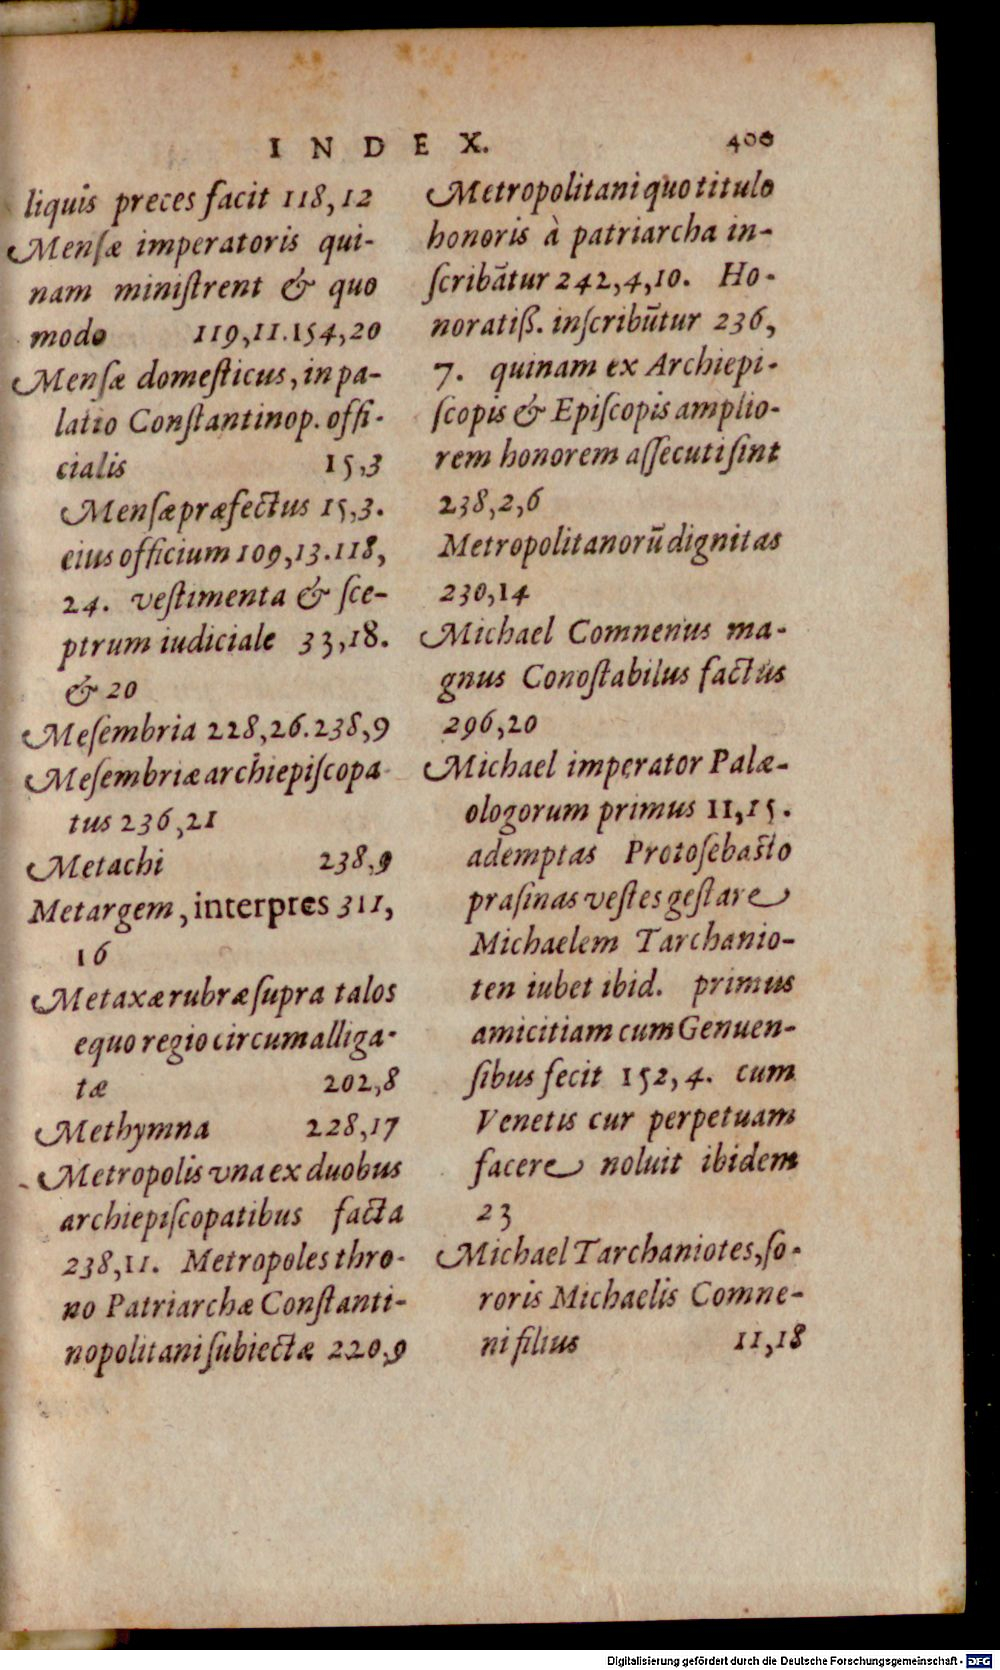 INDEX. 400
liquis preces facit 118,12
Mensæ imperatoris qui-
nam miniſtrent & quo
modo 119,11.154,20
Menſæ domeſticus, in pa-
latio Conſtantinop. offi-
cialis 15,3
Menſæ præfectus 15,3.
eius officium 109,13.118,
24. veſtimenta & ſce-
ptrum iudiciale 33,18.
& 20
Meſembria 228,26.238,9
Meſembriæ archiepiſcopa
tus 236,21
Metachi 238,9
Metargem, interpres 311,
16
Metaxæ rubræ ſupra talos
equo regio circumalliga-
tæ 202,8
Methymna 228,17
Metropolis vna ex duobus
archiepiſcopatibus facta
238,11. Metropoles thro-
no Patriarchæ Conſtanti-
nopolitani ſubiectæ 220,9
Metropolitani quo titulo
honoris à patriarcha in-
ſcribãtur 242,4,10. Ho-
noratiß. inſcribũtur 236,
7. quinam ex Archiepi-
ſcopis & Epiſcopis amplio-
rem honorem aſſecuti ſint
238,2,6
Metropolitanorũ dignitas
230,14
Michael Comnenus ma-
gnus Conoſtabilus factus
296,20
Michael imperator Palæ-
ologorum primus 11,15.
ademptas Protoſebaſto
praſinas veſtes geſtare
Michaelem Tarchanio-
ten iubet ibid. primus
amicitiam cum Genuen-
ſibus fecit 152,4. cum
Venetis cur perpetuam
facere noluit ibidem
23
Michael Tarchaniotes, ſo-
roris Michaelis Comne-
ni filius 11,18
Digitalisierung gefördert durch die Deutsche Forschungsgemeinschaft - DFG